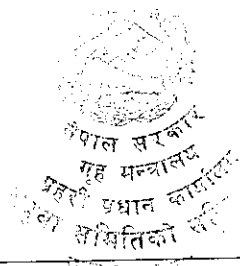 नेपाल सरकार
गृह मन्त्रालय
प्रहरी प्रधान कार्यालय
समितिको